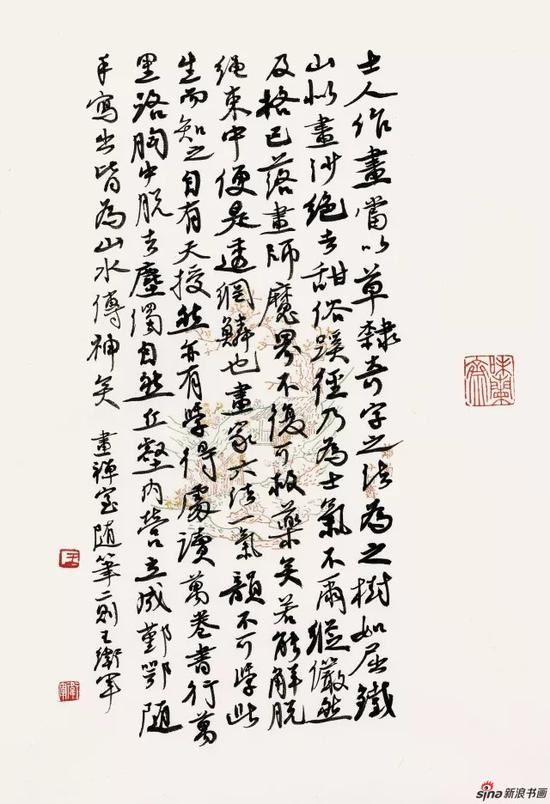 士人作畫當以草隸奇字之法為之樹如屈鐵
山似畫沙絕去甜俗蹊徑乃為士氣不爾縱儼然
及格已落畫師魔界不復可救藥矣若能解脫
繩束中便是透網鱗也畫家六法一氣韻不可學此
生而知之自有天授然亦有學得處讀萬卷書行萬
里路胸中脫去塵濁自然丘壑內營立成鄞鄂隨
手寫出皆為山水傳神矣 畫禪室隨筆二則王衛軍
味蘭齋
王
sina新浪书画